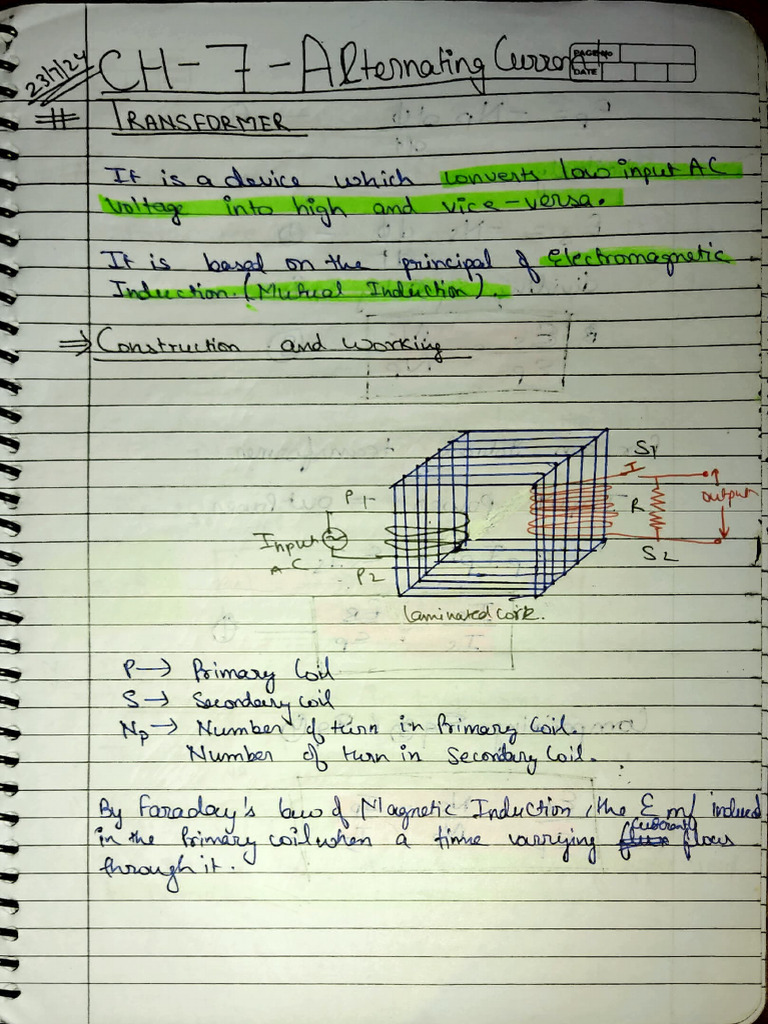 23/7/24
CH-7-Alternating Current
PAGE NO
DATE
# TRANSFORMER
It is a device which converts low input AC
voltage into high and vice-versa.
It is based on the principal of Electromagnetic
Induction. (Mutual Induction).
⇒ Construction and Working
P1
Input
AC
P2
S1
I
R
output
S2
Laminated Cork.
P → Primary Coil
S → Secondary coil
Np → Number of turn in Primary Coil.
Number of turn in Secondary Coil.
By Faraday's law of Magnetic Induction, the Emf induced
in the Primary coil when a time varrying current flows
through it.